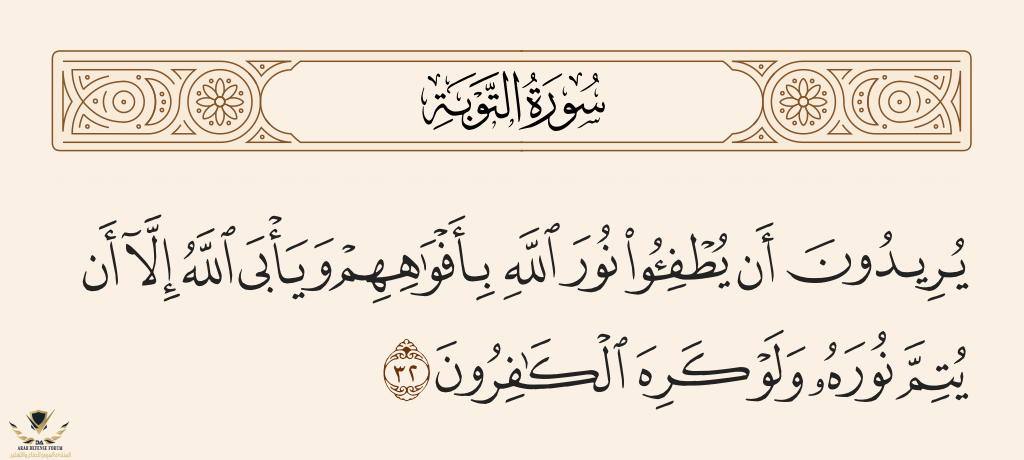 سُورَةُ التَّوْبَةِ
يُرِيدُونَ أَن يُطْفِـُٔوا۟ نُورَ ٱللَّهِ بِأَفْوَٰهِهِمْ وَيَأْبَى ٱللَّهُ إِلَّآ أَن
يُتِمَّ نُورَهُۥ وَلَوْ كَرِهَ ٱلْكَـٰفِرُونَ ٣٢
ARAB DEFENSE FORUM
المنتدى العربي للدفاع والتسليح